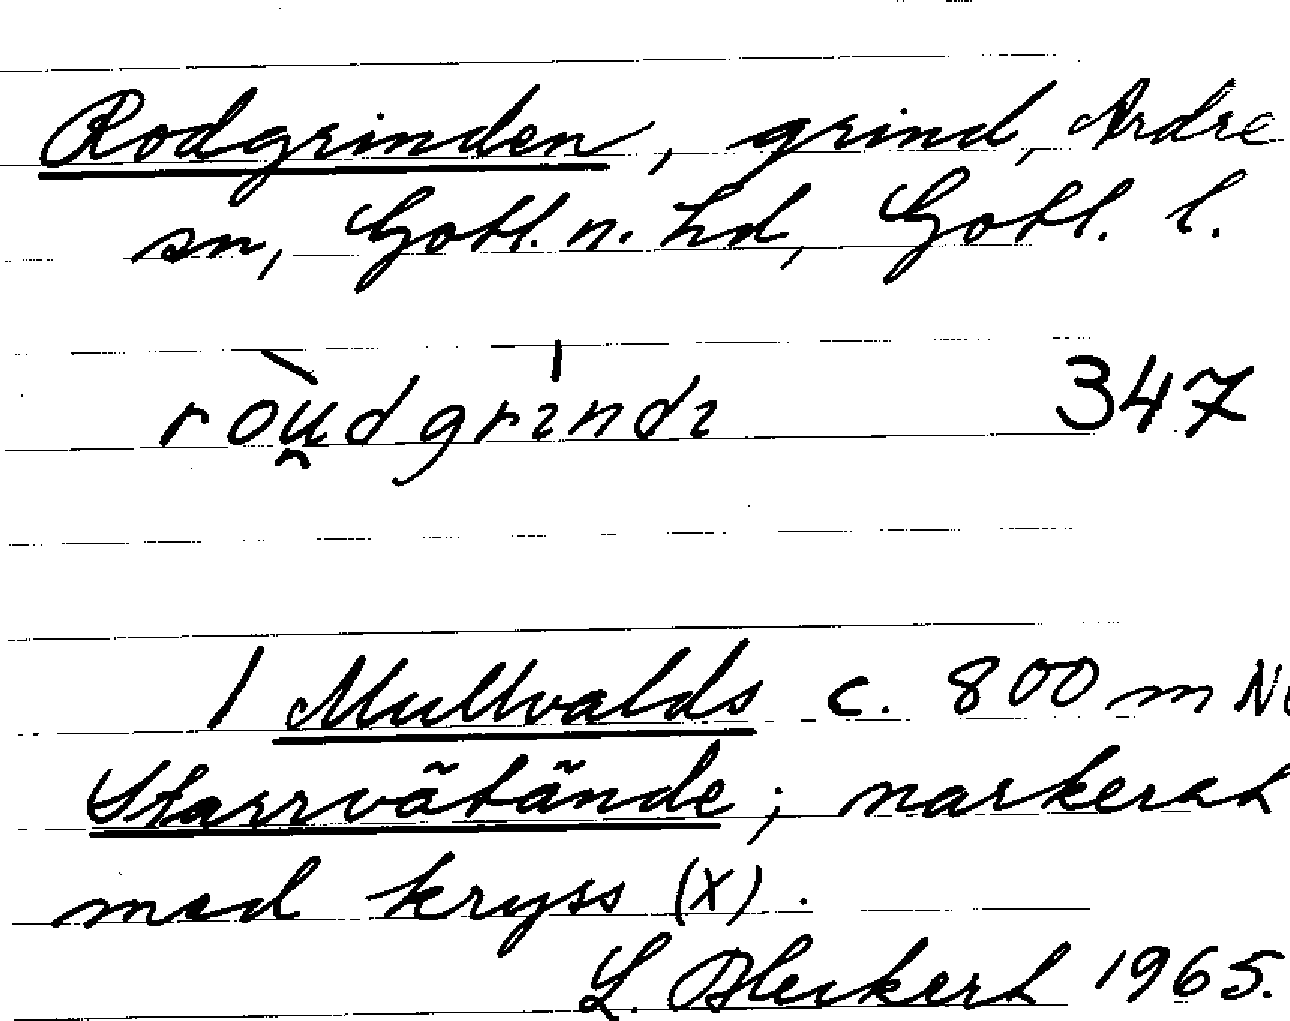 Rodgrinden, grind, Ardre
sn, Gotl. n. hd, Gotl. l.
ròu̯dgrındı 347
I Mullvalds c. 800 m
Starrvätände; markerat
med kryss (x).
L. Bleckert 1965.